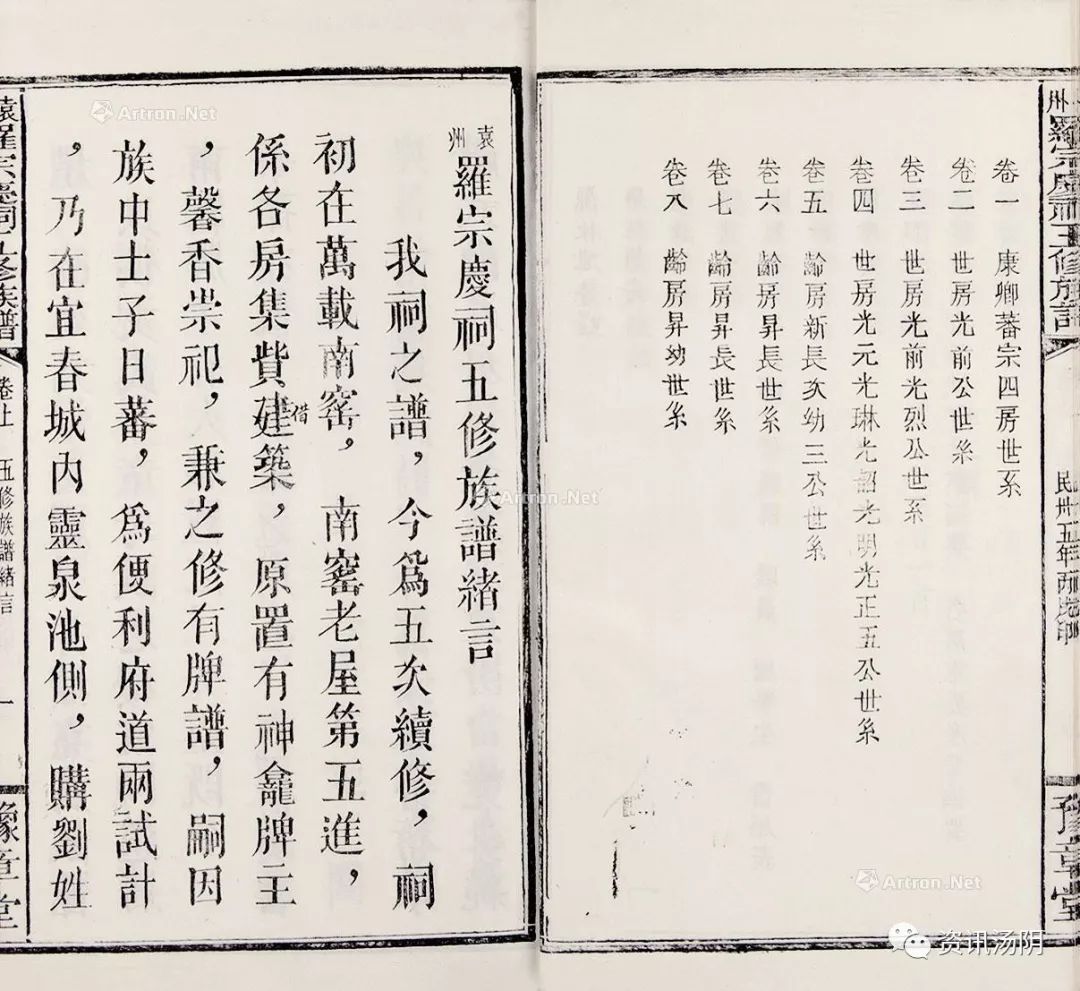 卅羅宗慶祠五修族譜
民卅五年丙戌印
豫章堂
卷一 康卿蕃宗四房世系
卷二 世房光前公世系
卷三 世房光前光烈公世系
卷四 世房光元光琳光詔光明光正五公世系
卷五 齡房新長次幼三公世系
卷六 齡房昇長世系
卷七 齡房昇長世系
卷八 齡房昇幼世系
袁州羅宗慶祠五修族譜緒言
我祠之譜，今爲五次續修，祠
初在萬載南窰，南窰老屋第五進，
係各房集貲借建築，原置有神龕牌主
，馨香祟祀，兼之修有牌譜，嗣因
族中士子日蕃，爲便利府道兩試計
，乃在宜春城內靈泉池側，購劉姓
袁羅宗慶祠五修族譜
卷上 五修族譜緒言
一
豫章堂
Artron.Net
Artron.Net
Artron.Net
资讯汤阴